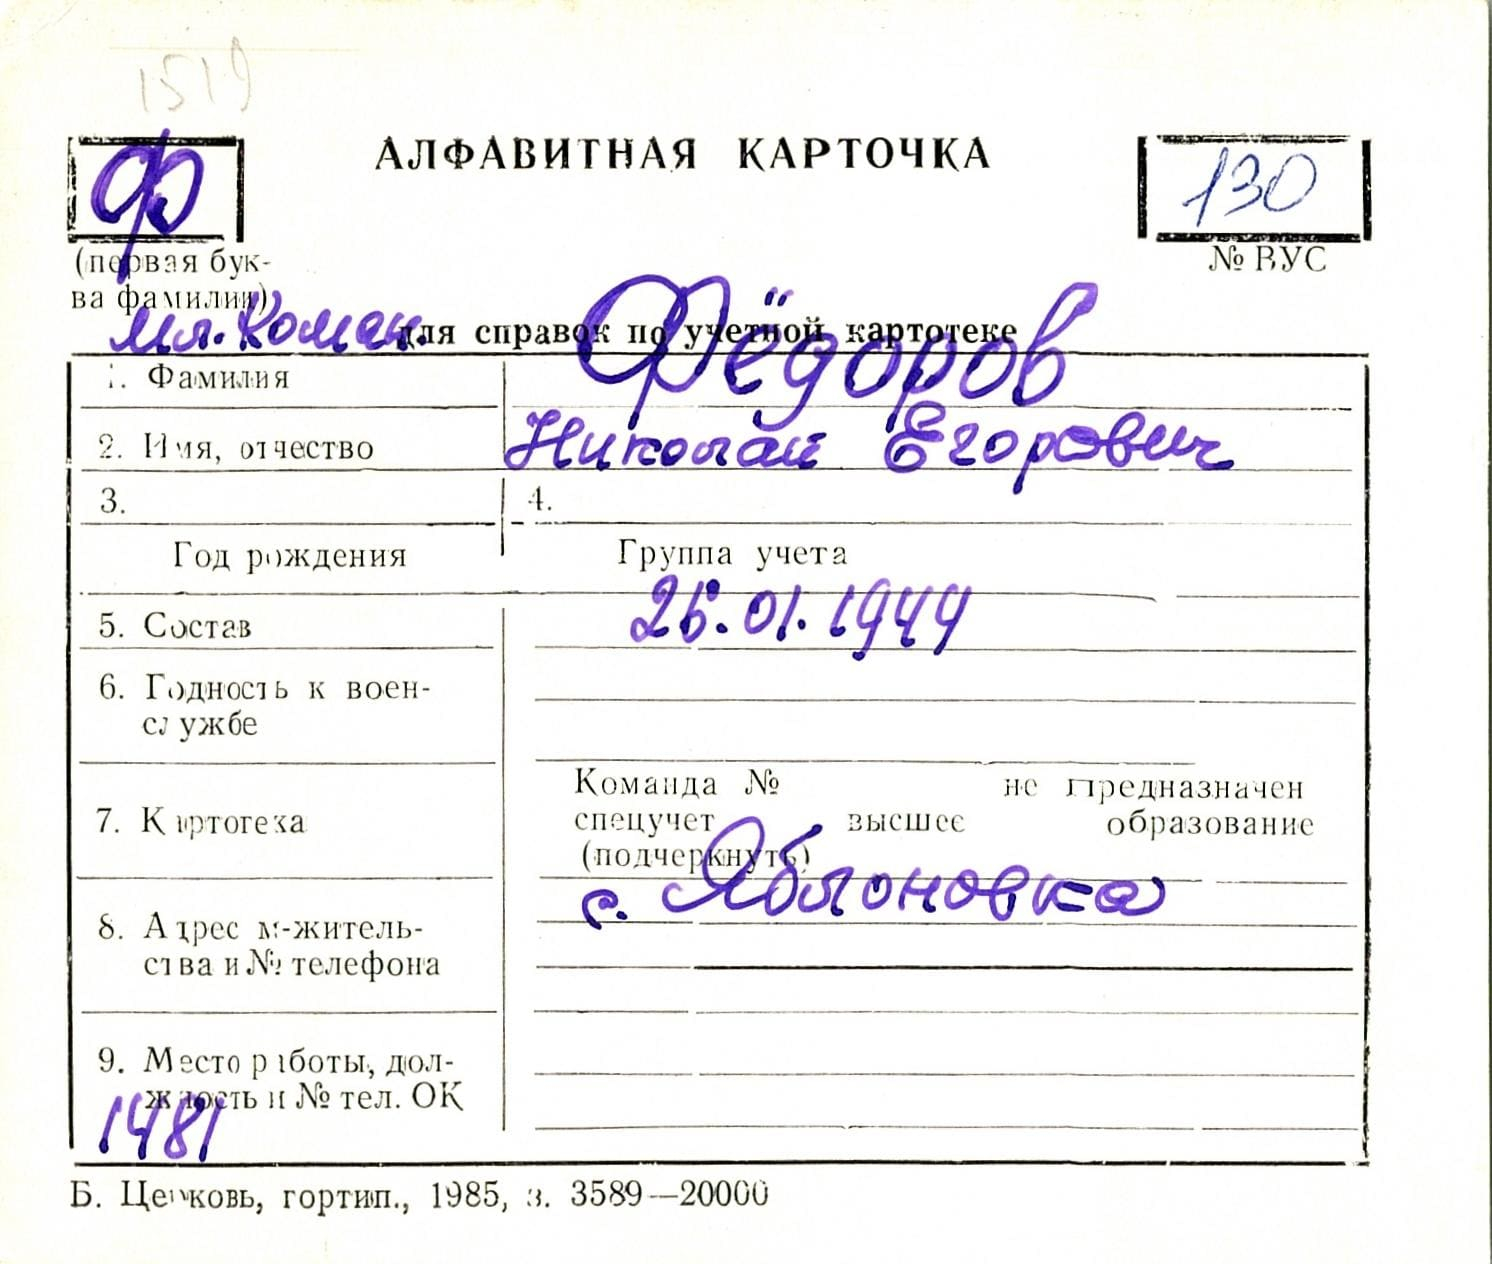 1519
Ф
АЛФАВИТНАЯ КАРТОЧКА
130
(первая бук-
ва фамилии)
№ ВУС
мл. Коман.
для справок по учетной картотеке
1. Фамилия Фёдоров
2. Имя, отчество Николай Егорович
3. 4.
Год рождения Группа учета
5. Состав 25.01.1949
6. Годность к воен-
службе
7. Картотека
Команда № не предназначен
спецучет высшее образование
(подчеркнуть)
с. Яблоновка
8. Адрес м-житель-
ства и № телефона
9. Место работы, дол-
жность и № тел. ОК
1481
Б. Церковь, гортип., 1985, з. 3589—20000